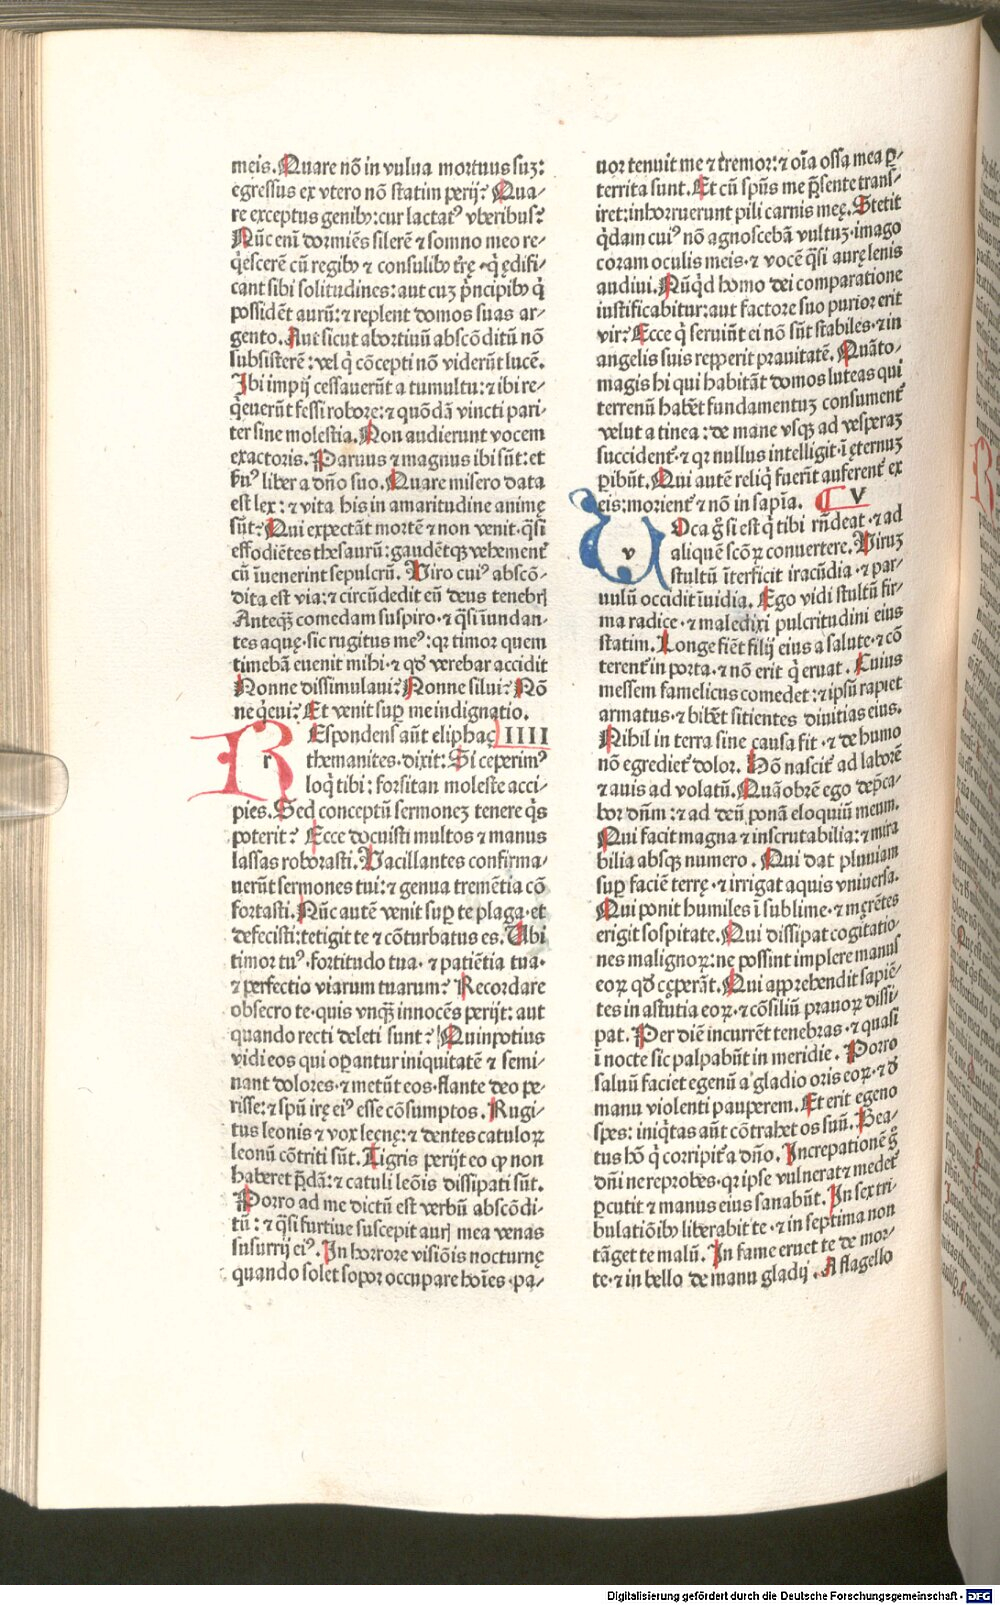 meis. Quare nõ in vulua mortuus suꝫ:
egressus ex vtero nõ statim perij? Qua-
re exceptus genibꝰ: cur lactatꝰ vberibus?
Nũc eni dormiẽs silerẽ ⁊ somno meo re-
q̇escerẽ cũ regibꝰ ⁊ consulibꝰ t̃rę · q̇ ędifi-
cant sibi solitudines: aut cuꝫ p̃ncipibꝰ q̇
possidẽt aurũ: ⁊ replent domos suas ar-
gento. Aut sicut abortiuũ abscõditũ nõ
subsisterẽ: vel q̇ cõcepti nõ viderũt lucẽ.
Ibi impij cessauerũt a tumultu: ⁊ ibi re-
q̇euerũt fessi robore: ⁊ quõdã vincti pari-
ter sine molestia. Non audierunt vocem
exactoris. Paruus ⁊ magnus ibi sũt: et
ẜuꝰ liber a dño suo. Quare misero data
est lex: ⁊ vita his in amaritudine animę
sũt? Qui expectãt mortẽ ⁊ non venit · q̇si
effodiẽtes thesaurũ: gaudẽtqꝫ vehemenť
cũ ĩuenerint sepulcrũ. Viro cuiꝰ abscõ-
dita est via: ⁊ circũdedit eũ deus tenebrꝭ
Anteqꝫ̃ comedam suspiro · ⁊ q̇si ĩundan-
tes aquę · sic rugitus meꝰ: qꝛ timor quem
timebã euenit mihi · ⁊ qd̾ verebar accidit
Nonne dissimulaui? Nonne silui? Nõ
ne q̇eui? Et venit suꝑ me indignatio.
r Espondens aũt eliphaç IIII
themanites · dixit: Si ceperimꝰ
loq̇ tibi: forsitan moleste acci
pies. Sed conceptũ sermoneꝫ tenere q̇s
poterit? Ecce docuisti multos ⁊ manus
lassas roborasti. Vacillantes confirma-
uerũt sermones tui: ⁊ genua tremẽtia cõ
fortasti. Nũc autẽ venit suꝑ te plaga · et
defecisti: tetigit te ⁊ cõturbatus es. Ubi
timor tuꝰ · fortitudo tua · ⁊ patiẽtia tua ·
⁊ perfectio viarum tuarum? Recordare
obsecro te · quis vnqꝫ̃ innocẽs perijt: aut
quando recti deleti sunt? Quinpotius
vidi eos qui oꝑantur iniquitatẽ ⁊ semi-
nant dolores · ⁊ metũt eos · flante deo pe-
risse: ⁊ spũ irę eiꝰ esse cõsumptos. Rugi-
tus leonis ⁊ vox leęnę: ⁊ dentes catuloꝝ
leonũ cõtriti sũt. Tigris perijt eo ꝙ non
haberet p̃dã: ⁊ catuli leõis dissipati sũt.
Porro ad me dictũ est verbũ abscõdi-
tũ: ⁊ q̇si furtiue suscepit aurꝭ mea venas
susurrij eiꝰ. In horrore visiõis nocturnę
quando solet sopor occupare hoĩes · pa-
uor tenuit me ⁊ tremor: ⁊ oĩa ossa mea ꝑ-
territa sunt. Et cũ spũs me p̃sente trans-
iret: inhorruerunt pili carnis meę. Stetit
q̇dam cuiꝰ nõ agnoscebã vultuꝫ · imago
coram oculis meis · ⁊ vocẽ q̇si aurę lenis
audiui. Nũq̇d homo dei comparatione
iustificabitur: aut factore suo purior erit
vir? Ecce q̇ seruiũt ei nõ sũt stabiles · ⁊ in
angelis suis repperit prauitatẽ. Quãto-
magis hi qui habitãt domos luteas qui
terrenũ habẽt fundamentuꝫ consumenť
velut a tinea: de mane vsqꝫ ad vesperaꝫ
succidenť · ⁊ qꝛ nullus intelligit · ĩ ęternuꝫ
ꝑibũt. Qui autẽ reliq̇ fuerĩt auferenť ex
eis: morienť ⁊ nõ in sapĩa. V
v Oca g̊ si est q̇ tibi rñdeat · ⁊ ad
aliquẽ scõꝝ conuertere. Viruꝫ
stultũ ĩterficit iracũdia · ⁊ par-
uulũ occidit ĩuidia. Ego vidi stultũ fir-
ma radice · ⁊ maledixi pulcritudini eius
statim. Longe fiẽt filij eius a salute · ⁊ cõ
terenť in porta · ⁊ nõ erit q̇ eruat. Cuius
messem famelicus comedet: ⁊ ipsũ rapiet
armatus · ⁊ bibẽt sitientes diuitias eius.
Nihil in terra sine causa fit · ⁊ de humo
nõ egredieť dolor. Hõ nasciť ad laborẽ
⁊ auis ad volatũ. Quãobrẽ ego dep̃ca-
bor dñm: ⁊ ad deũ ponã eloquiũ meum.
Qui facit magna ⁊ inscrutabilia: ⁊ mira
bilia absqꝫ numero. Qui dat pluuiam
suꝑ faciẽ terrę · ⁊ irrigat aquis vniuersa.
Qui ponit humiles ĩ sublime · ⁊ męrẽtes
erigit sospitate. Qui dissipat cogitatio-
nes malignoꝝ: ne possint implere manus
eoꝝ qd̾ cęperãt. Qui apprehendit sapiẽ-
tes in astutia eoꝝ · ⁊ cõsiliũ prauoꝝ dissi-
pat. Per diẽ incurrẽt tenebras · ⁊ quasi
ĩ nocte sic palpabũt in meridie. Porro
saluũ faciet egenũ a gladio oris eoꝝ · ⁊ d̾
manu violenti pauperem. Et erit egeno
spes: iniq̇tas aũt cõtrahet os suũ. Bea-
tus hõ q̇ corripiť a dño. Increpationẽ g̊
dñi ne reprobes · qꝛ ipse vulnerat ⁊ medeť
ꝑcutit ⁊ manus eius sanabũt. In sex tri-
bulatiõibꝰ liberabit te · ⁊ in septima non
tãget te malũ. In fame eruet te de mor-
te · ⁊ in bello de manu gladij. A flagello
Digitalisierung gefördert durch die Deutsche Forschungsgemeinschaft - DFG